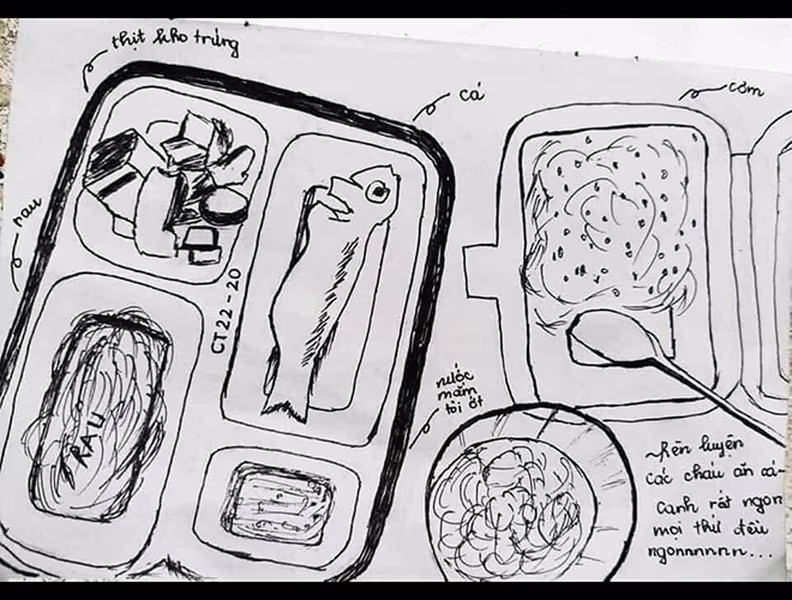 thịt kho trứng
cá
cơm
rau
CT22-20
RAU
nước
mắm
tỏi ớt
Rèn luyện
các cháu ăn cá
Canh rất ngon
mọi thứ đều
ngonnnnnn...